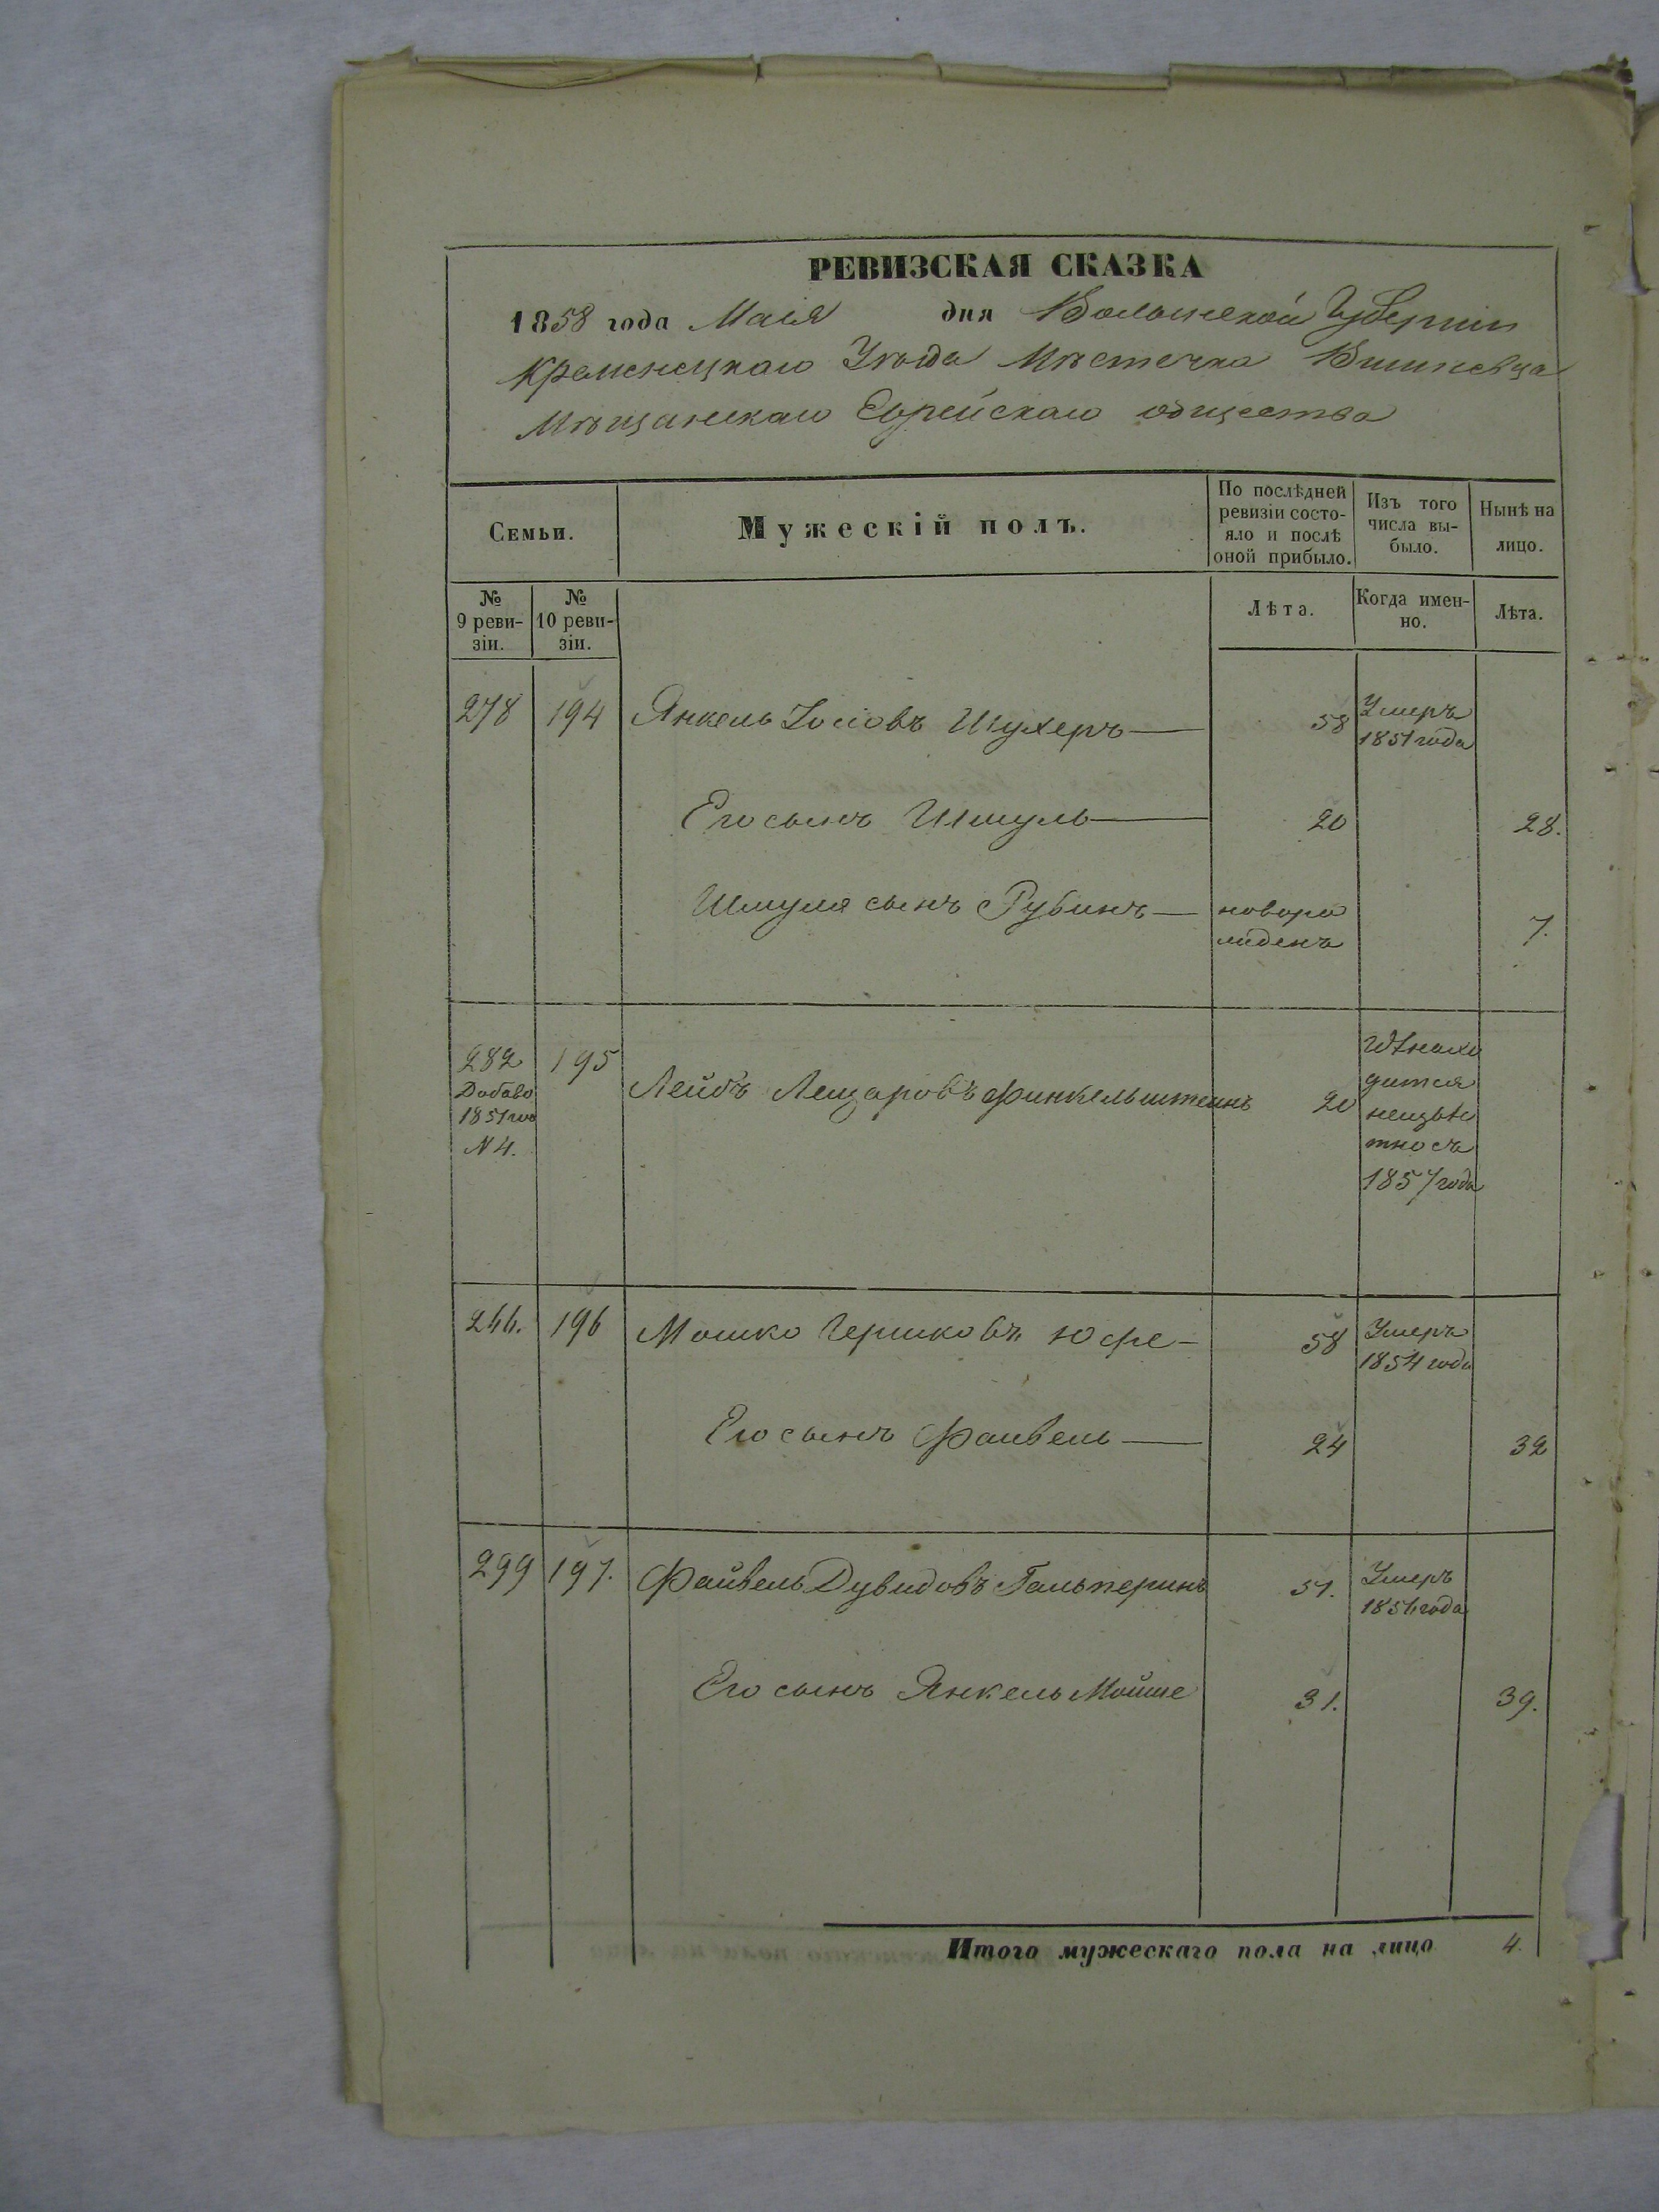 РЕВИЗСКАЯ СКАЗКА
1858 года Маія дня Волынской Губерніи
Кременецкаго Уѣзда Мѣстечка Вишневца
Мѣщанскаго Еврейскаго общества
Семьи.
Мужескій полъ.
По послѣдней
ревизіи состо-
яло и послѣ
оной прибыло.
Изъ того
числа вы-
было.
Нынѣ на
лицо.
№
9 реви-
зіи.
№
10 реви-
зіи.
Лѣта.
Когда имен-
но.
Лѣта.
278 194 Янкель Іосіовъ Шухеръ 58 Умеръ
1851 года
Его сынъ Шмуль 20 28.
Шмуля сынъ Рубинъ новоро
жденъ 7.
282 195
Добаво
1851 го
N 4.
Лейбъ Лейзаровъ Финкельштеинъ 20
гдѣ нахо
дится
неизвѣс
тно съ
1857 года
244. 196 Мошко Гершковъ Юфе 58 Умеръ
1854 года
Его сынъ Фаивель 24 32
299 197. Файвель Дувидовъ Гальперинъ 51. Умеръ
1856 года
Его сынъ Янкель Мойше 31. 39.
Итого мужескаго пола на лицо 4.